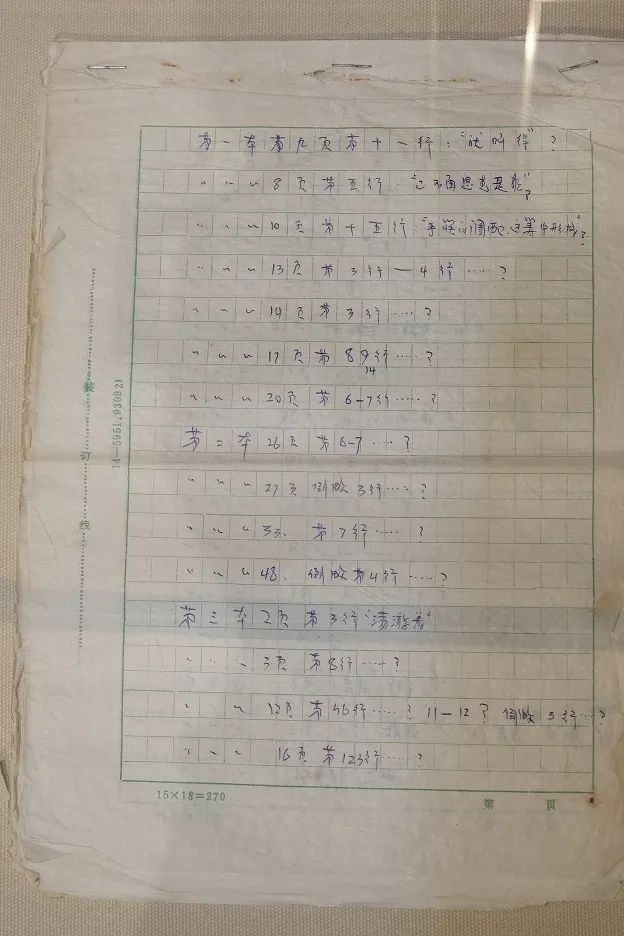 第一本第九页第十一行:“就叫得”?
〃 〃 〃 8页第五行:“
〃 〃 〃 10页第十五行:“
〃 〃 〃 13页第3行—4行……?
〃 〃 〃 14页第3行……?
〃 〃 〃 17页第89行……?
14
〃 〃 〃 20页第6-7行……?
第二本26页第6-7……?
〃 〃 〃 27页倒数3行……?
〃 〃 〃 33、第7行……?
〃 〃 〃 48、倒数第4行……?
第三本2页第3行“荡游着”
〃 〃 〃 3页第8行……?
〃 〃 〃 12页第46行……?11—12?倒数3行……?
〃 〃 〃 16页第12行……?
15×18=270
第 页
装订线
14—5951.930921